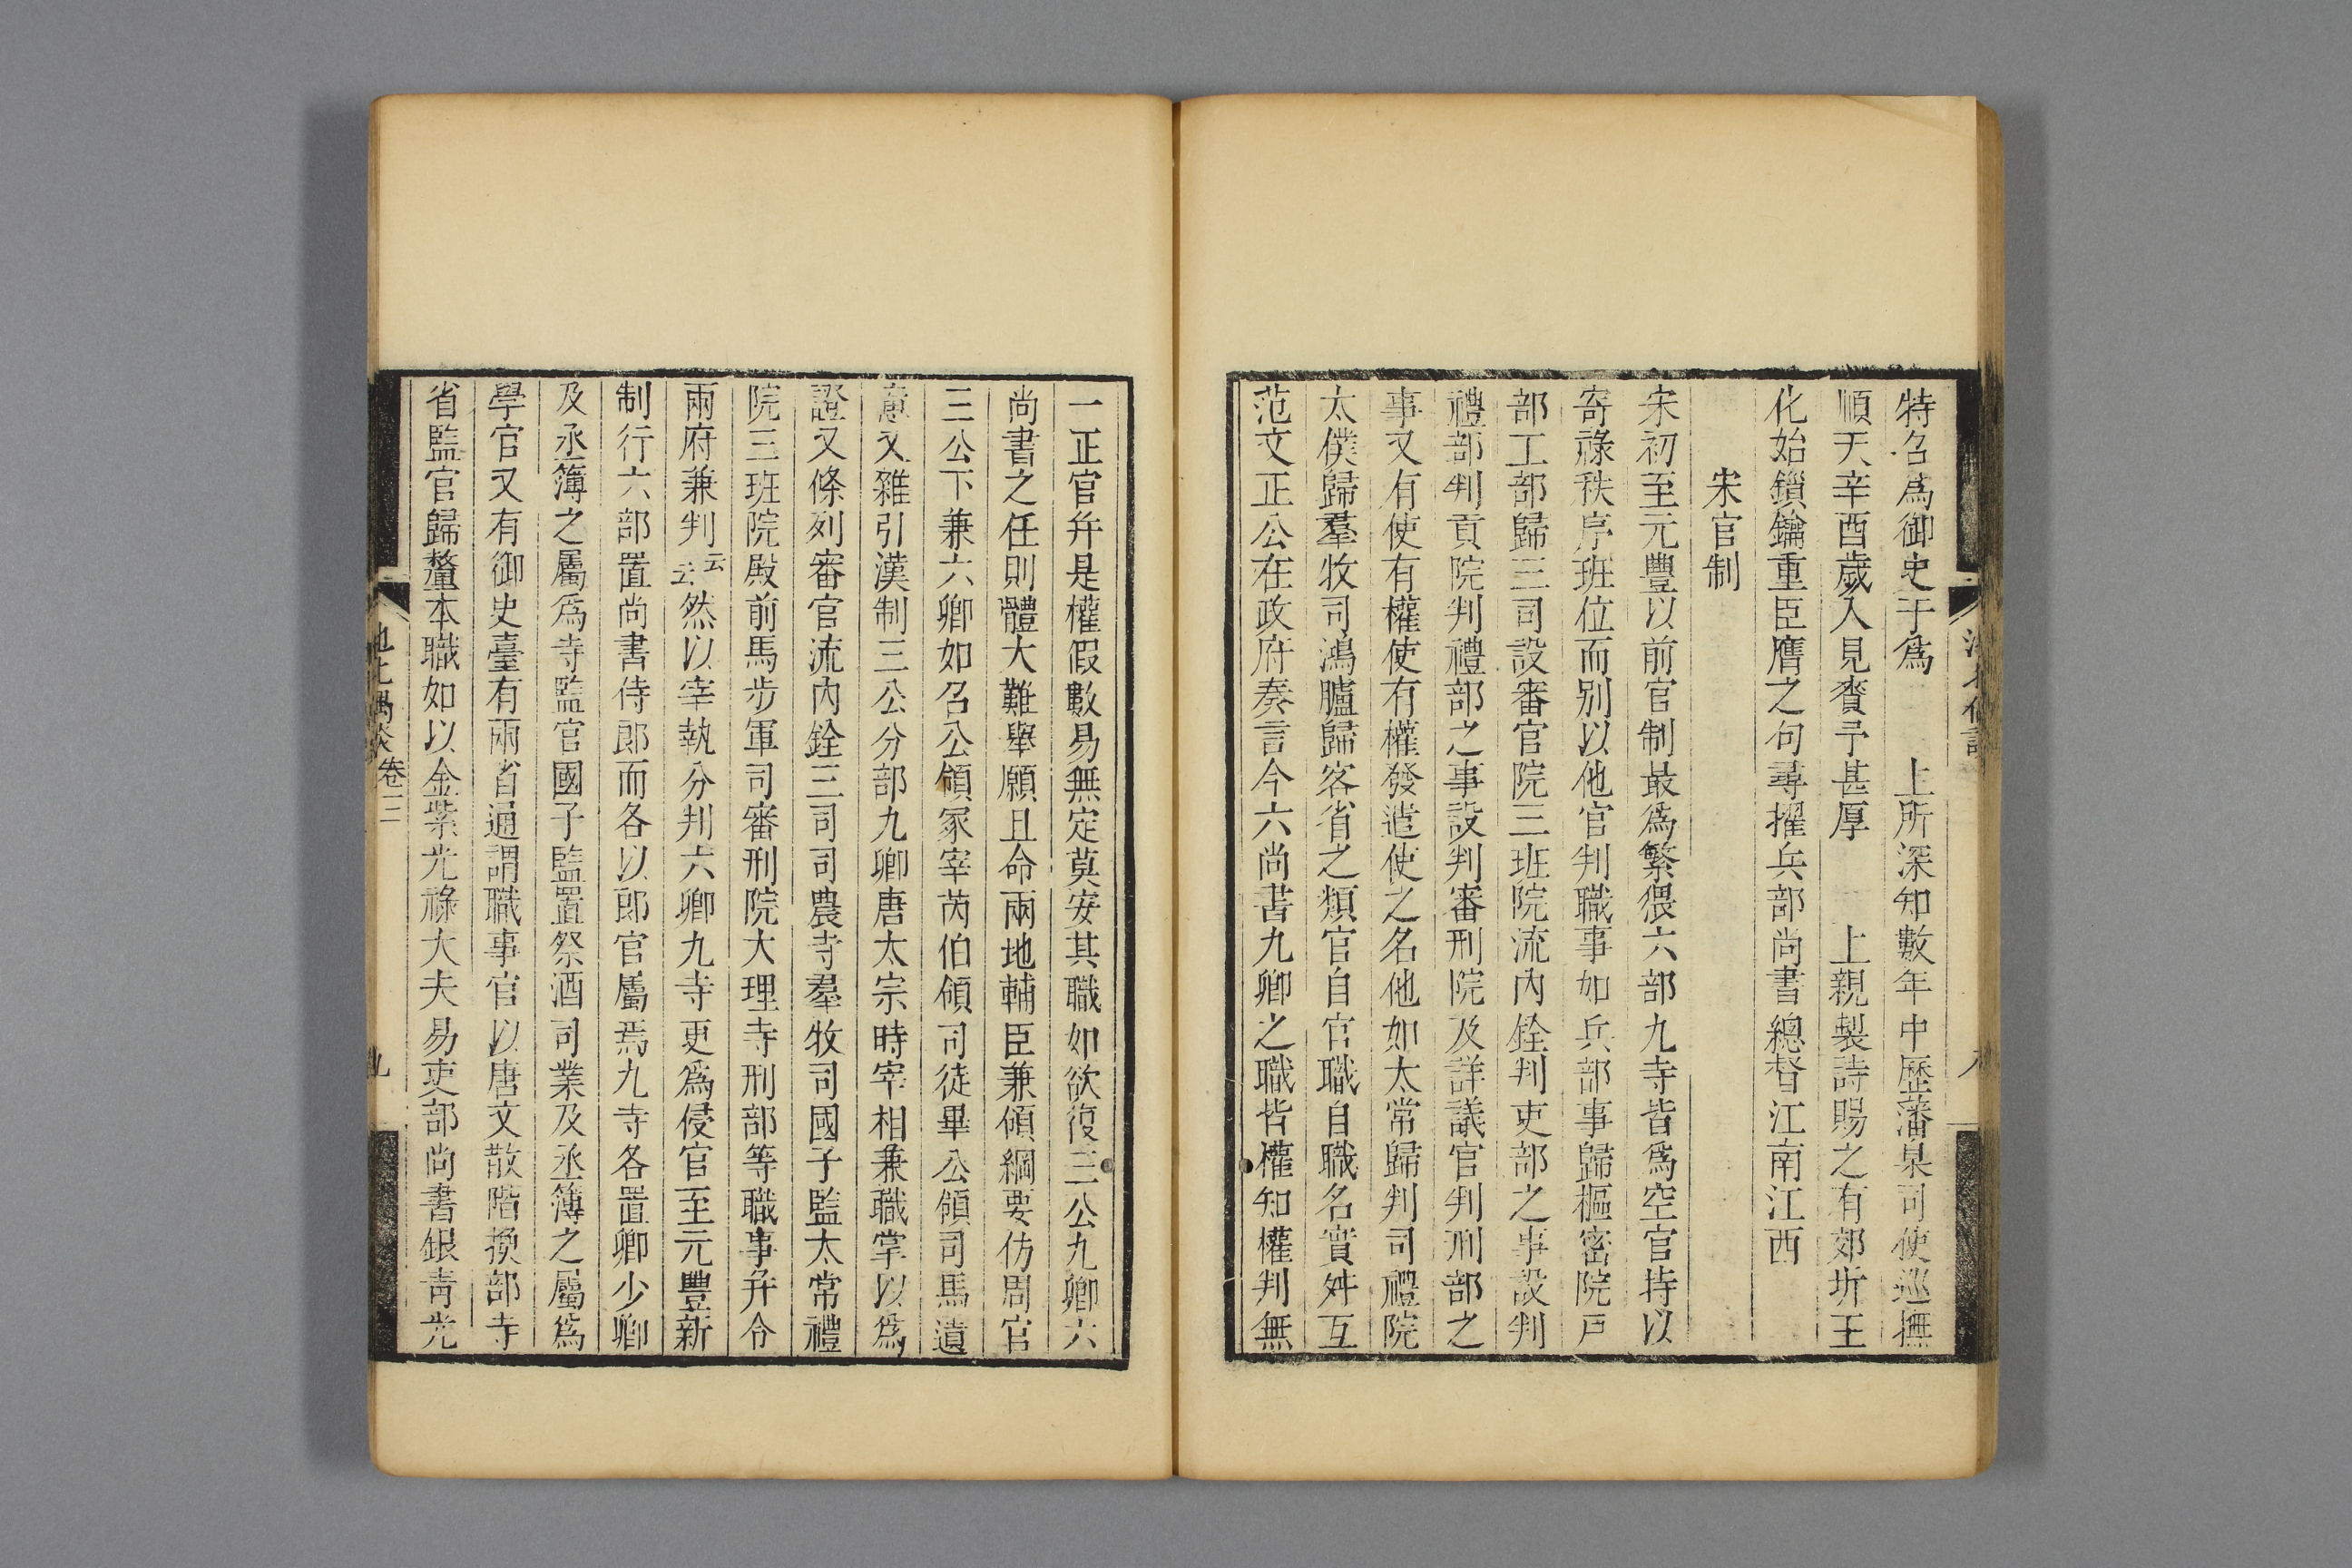 特名爲御史于爲 上所深知數年中歷藩臬司使巡撫
順天辛酉歲入見賚予甚厚 上親製詩賜之有郊圻王
化始鎖鑰重臣膺之句尋擢兵部尚書總督江南江西
宋官制
宋初至元豐以前官制最爲繁猥六部九寺皆爲空官持以
寄祿秩序班位而别以他官判職事如兵部事歸樞密院戸
部工部歸三司設審官院三班院流內銓判吏部之事設判
禮部判貢院判禮部之事設判審刑院及詳議官判刑部之
事又有使有權使有權發遣使之名他如太常歸判司禮院
太僕歸羣牧司鴻臚歸客省之類官自官職自職名實舛互
范文正公在政府奏言今六尚書九卿之職皆權知權判無
一正官弁是權假數易無定莫安其職如欲復三公九卿六
尚書之任則體大難舉願且命兩地輔臣兼領綱要仿周官
三公下兼六卿如召公領冢宰芮伯領司徒畢公領司馬遺
意又雜引漢制三公分部九卿唐太宗時宰相兼職掌以爲
證又條列審官流內銓三司司農寺羣牧司國子監太常禮
院三班院殿前馬步軍司審刑院大理寺刑部等職事弁令
兩府兼判云云然以宰執分判六卿九寺更爲侵官至元豐新
制行六部置尚書侍郎而各以郎官屬焉九寺各置卿少卿
及丞簿之屬爲寺監官國子監置祭酒司業及丞簿之屬爲
學官又有御史臺有兩省通謂職事官以唐文散階換部寺
省監官歸釐本職如以金紫光祿大夫易吏部尚書銀青光
池北偶談 卷三 九